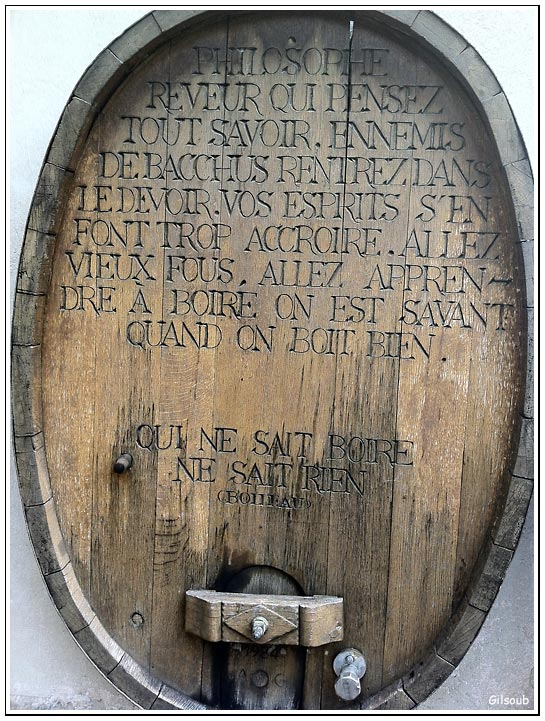 PHILOSOPHE
REVEUR QUI PENSEZ
TOUT SAVOIR. ENNEMIS
DE BACCHUS RENTREZ DANS
LE DEVOIR. VOS ESPRITS S'EN
FONT TROP ACCROIRE. ALLEZ
VIEUX FOUS, ALLEZ APPREN-
DRE À BOIRE ON EST SAVANT
QUAND ON BOIT BIEN.
QUI NE SAIT BOIRE
NE SAIT RIEN
(BOILEAU)
A G
Gilsoub